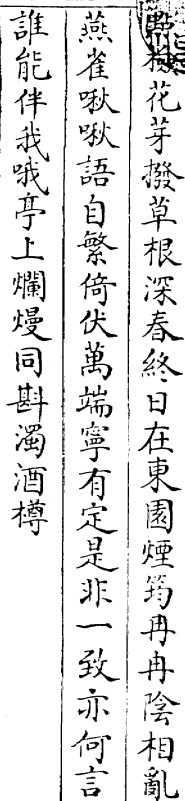 點檢花芽撥草根深春終日在東園煙筠冉冉陰相亂
燕雀啾啾語自繁倚伏萬端寧有定是非一致亦何言
誰能伴我哦亭上爛熳同斟濁酒樽